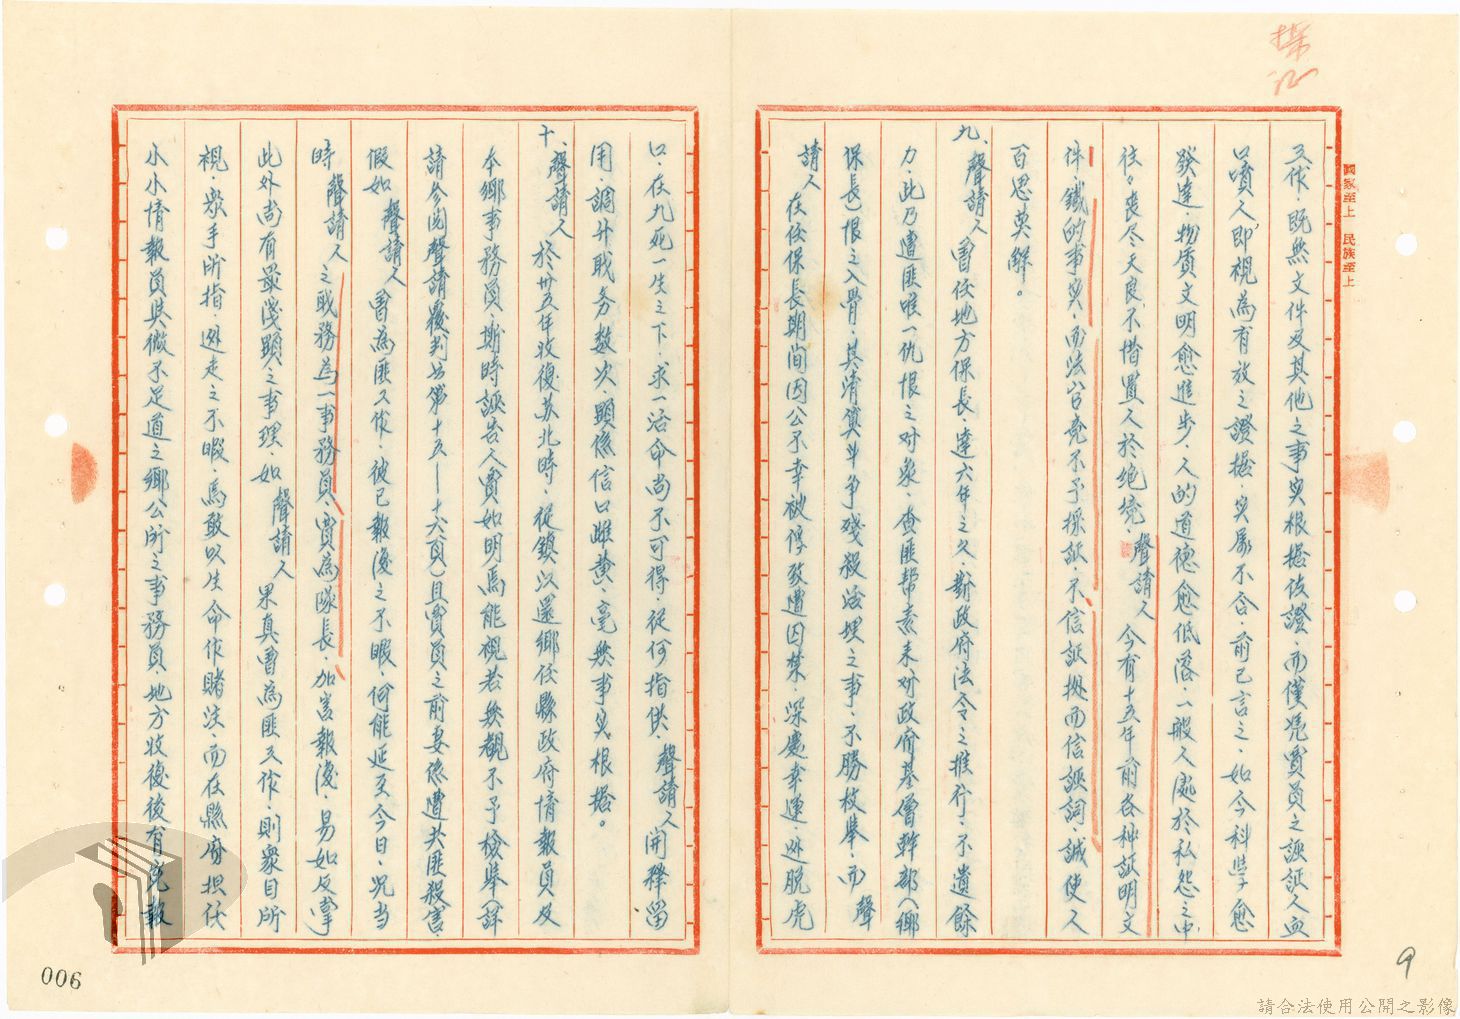 國家至上 民族至上
工作，既無文件及其他之事實根據佐證，而僅憑賈員之誣証人血
口噴人，即視為有放之證據，實屬不合，前已言之，如今科學愈
發達，物質文明愈進步，人的道德愈低落，一般人處於私怨之中
往々喪尽天良，不惜置人於絕境，聲請人今有十五年前各种証明文
件鐵的事实，而法官竟不予採証，不信証據而信誣詞，誠使人
百思莫解。
九、聲請人曾任地方保長，達六年之久，對政府法令之推行，不遺餘
力，此乃遭匪唯一仇恨之对象，查匪帮素來对政府基層幹部（鄉
保長）恨之入骨，其清算斗争殘殺活埋之事，不勝枚舉，而聲
請人在任保長期間因公不幸被俘致遭囚禁，深慶幸運，逃脫虎
口，在九死一生之下，求一活命尚不可得，從何指供，聲請人開釋留
用，調升职务数次，顯係信口雌黄，毫無事实根據。
十、聲請人於卅五年收復苏北時，從鎮江還鄉任縣政府情報員及
本鄉事務員，斯時誣告人賈如明焉能視若無覩不予檢舉（詳
請参閱聲請覆判书第十五—十六頁）且賈員之前妻係遭共匪殺害，
假如聲請人曾為匪工作，彼已報復之不暇，何能延至今日，况当
時聲請人之职務為一事務員，賈為隊長，加害報復，易如反掌
此外尚有最淺顯之事理，如聲請人果真曾為匪工作，則衆目所
視，眾手所指，逃走之不暇，焉敢以生命作賭注，而在縣府担任
小小情報員與微不足道之鄉公所之事務員，地方收復後有冤報
006
9
請合法使用公開之影像